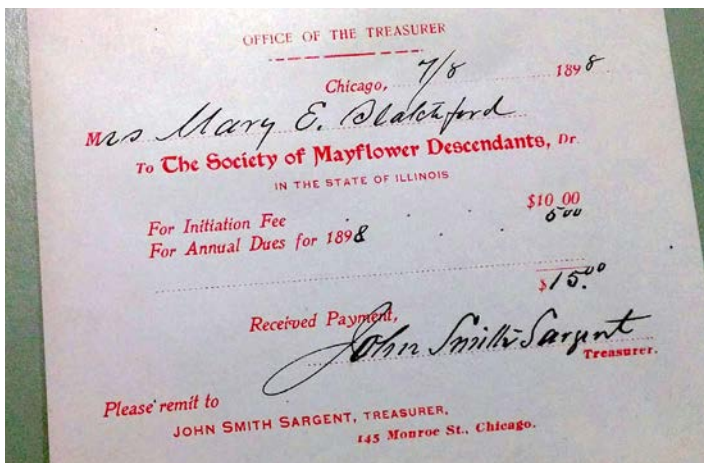 OFFICE OF THE TREASURER
Chicago, 7/8 1898
Mrs Mary E. Blatchford
To The Society of Mayflower Descendants, Dr.
IN THE STATE OF ILLINOIS
For Initiation Fee $10.00
For Annual Dues for 1898 5.00
$15.00
Received Payment,
John Smith Sargent
Treasurer.
Please remit to
JOHN SMITH SARGENT, TREASURER,
145 Monroe St., Chicago.